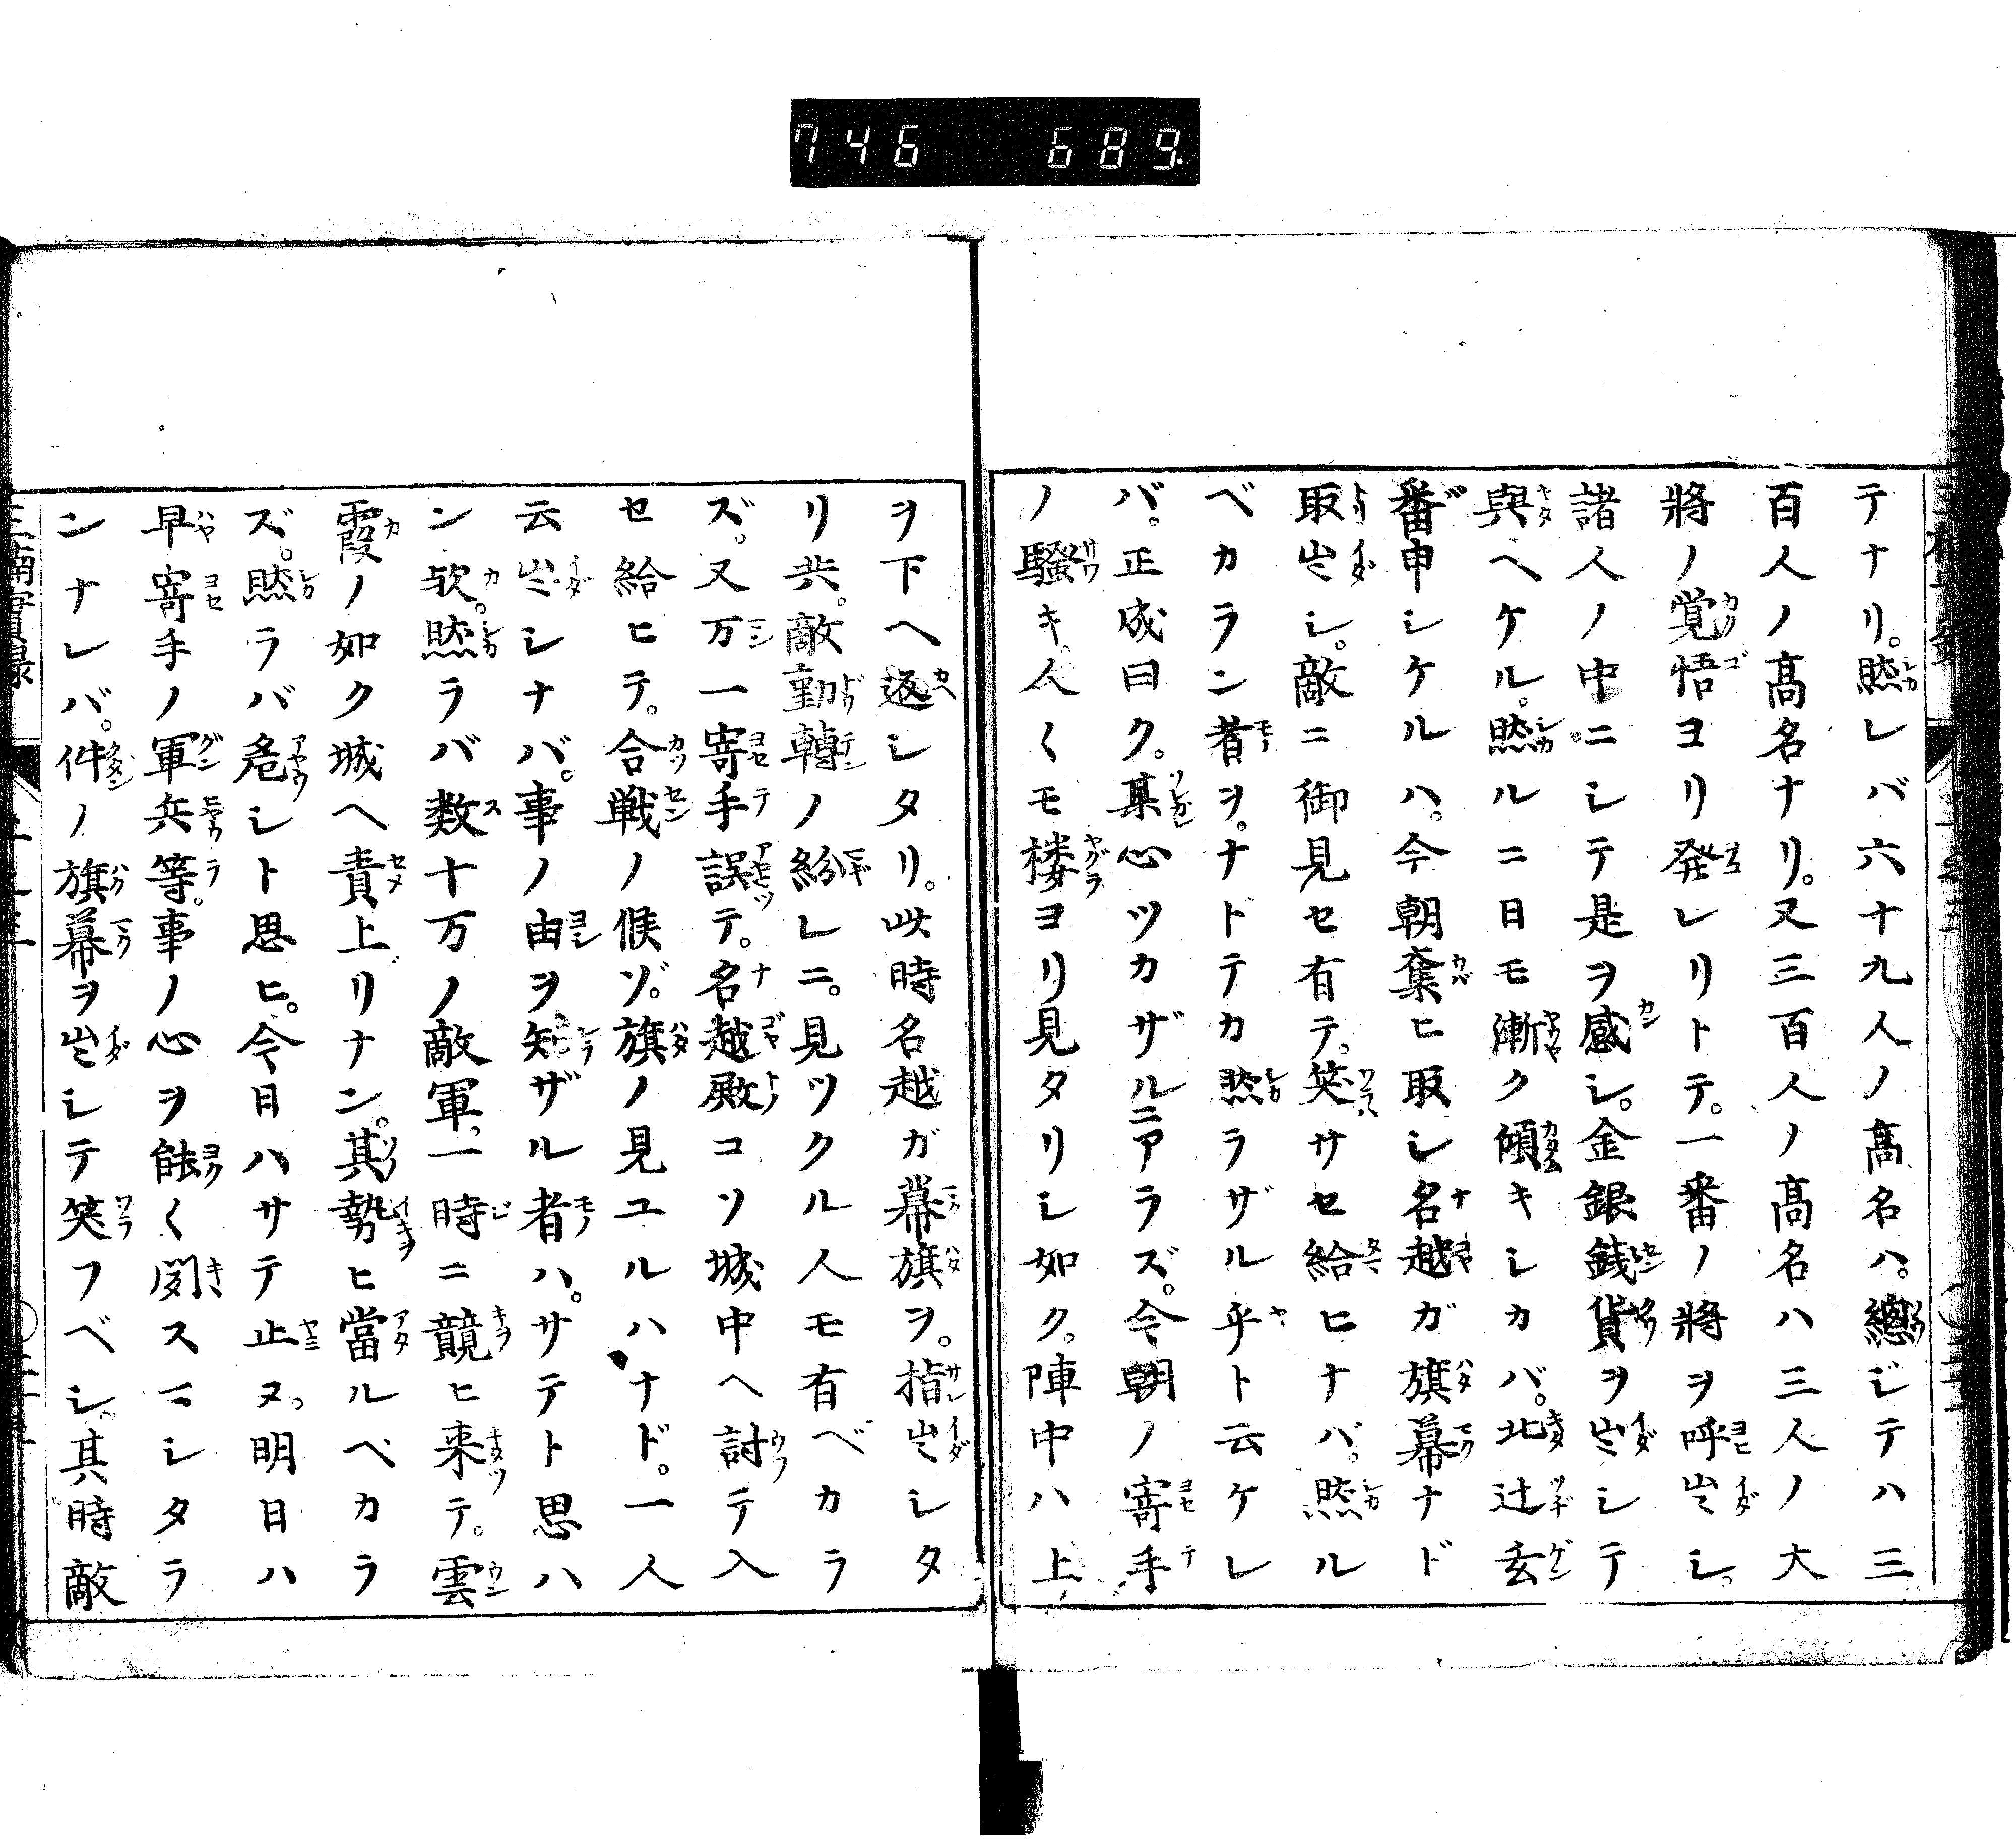 746 689.
テナリ。然レバ六十九人ノ高名ハ。總ジテハ三
百人ノ高名ナリ。又三百人ノ高名ハ三人ノ大
將ノ覚悟ヨリ発レリトテ。一番ノ將ヲ呼出シ。
諸人ノ中ニシテ是ヲ感シ。金銀錢貨ヲ出シテ
與ヘケル。然ルニ日モ漸ク傾キシカバ。北辻玄
番申シケルハ。今朝奪ヒ取シ名越ガ旗幕ナド
取出シ。敵ニ御見セ有テ。笑サセ給ヒナバ。然ル
ベカラン者ヲ。ナドテカ然ラザル乎ト云ケレ
バ。正成曰ク。某心ツカザルニアラズ。今朝ノ寄手
ノ騒キ。人〱モ楼ヨリ見タリシ如ク。陣中ハ上
ヲ下ヘ返シタリ。此時名越ガ幕旗ヲ。指出シタ
リ共。敵動轉ノ紛レニ。見ツクル人モ有ベカラ
ズ。又万一寄手誤テ。名越殿コソ城中ヘ討テ入
セ給ヒテ。合戦ノ候ゾ。旗ノ見ユルハナド。一人
云出シナバ。事ノ由ヲ知ザル者ハ。サテト思ハ
ン欤。然ラバ数十万ノ敵軍。一時ニ競ヒ来テ。雲
霞ノ如ク城ヘ責上リナン。其勢ヒ當ルベカラ
ズ。然ラバ危シト思ヒ。今日ハサテ止ヌ。明日ハ
早寄手ノ軍兵等。事ノ心ヲ能〱聞スマシタラ
ンナレバ。件ノ旗幕ヲ出シテ笑フベシ。其時敵